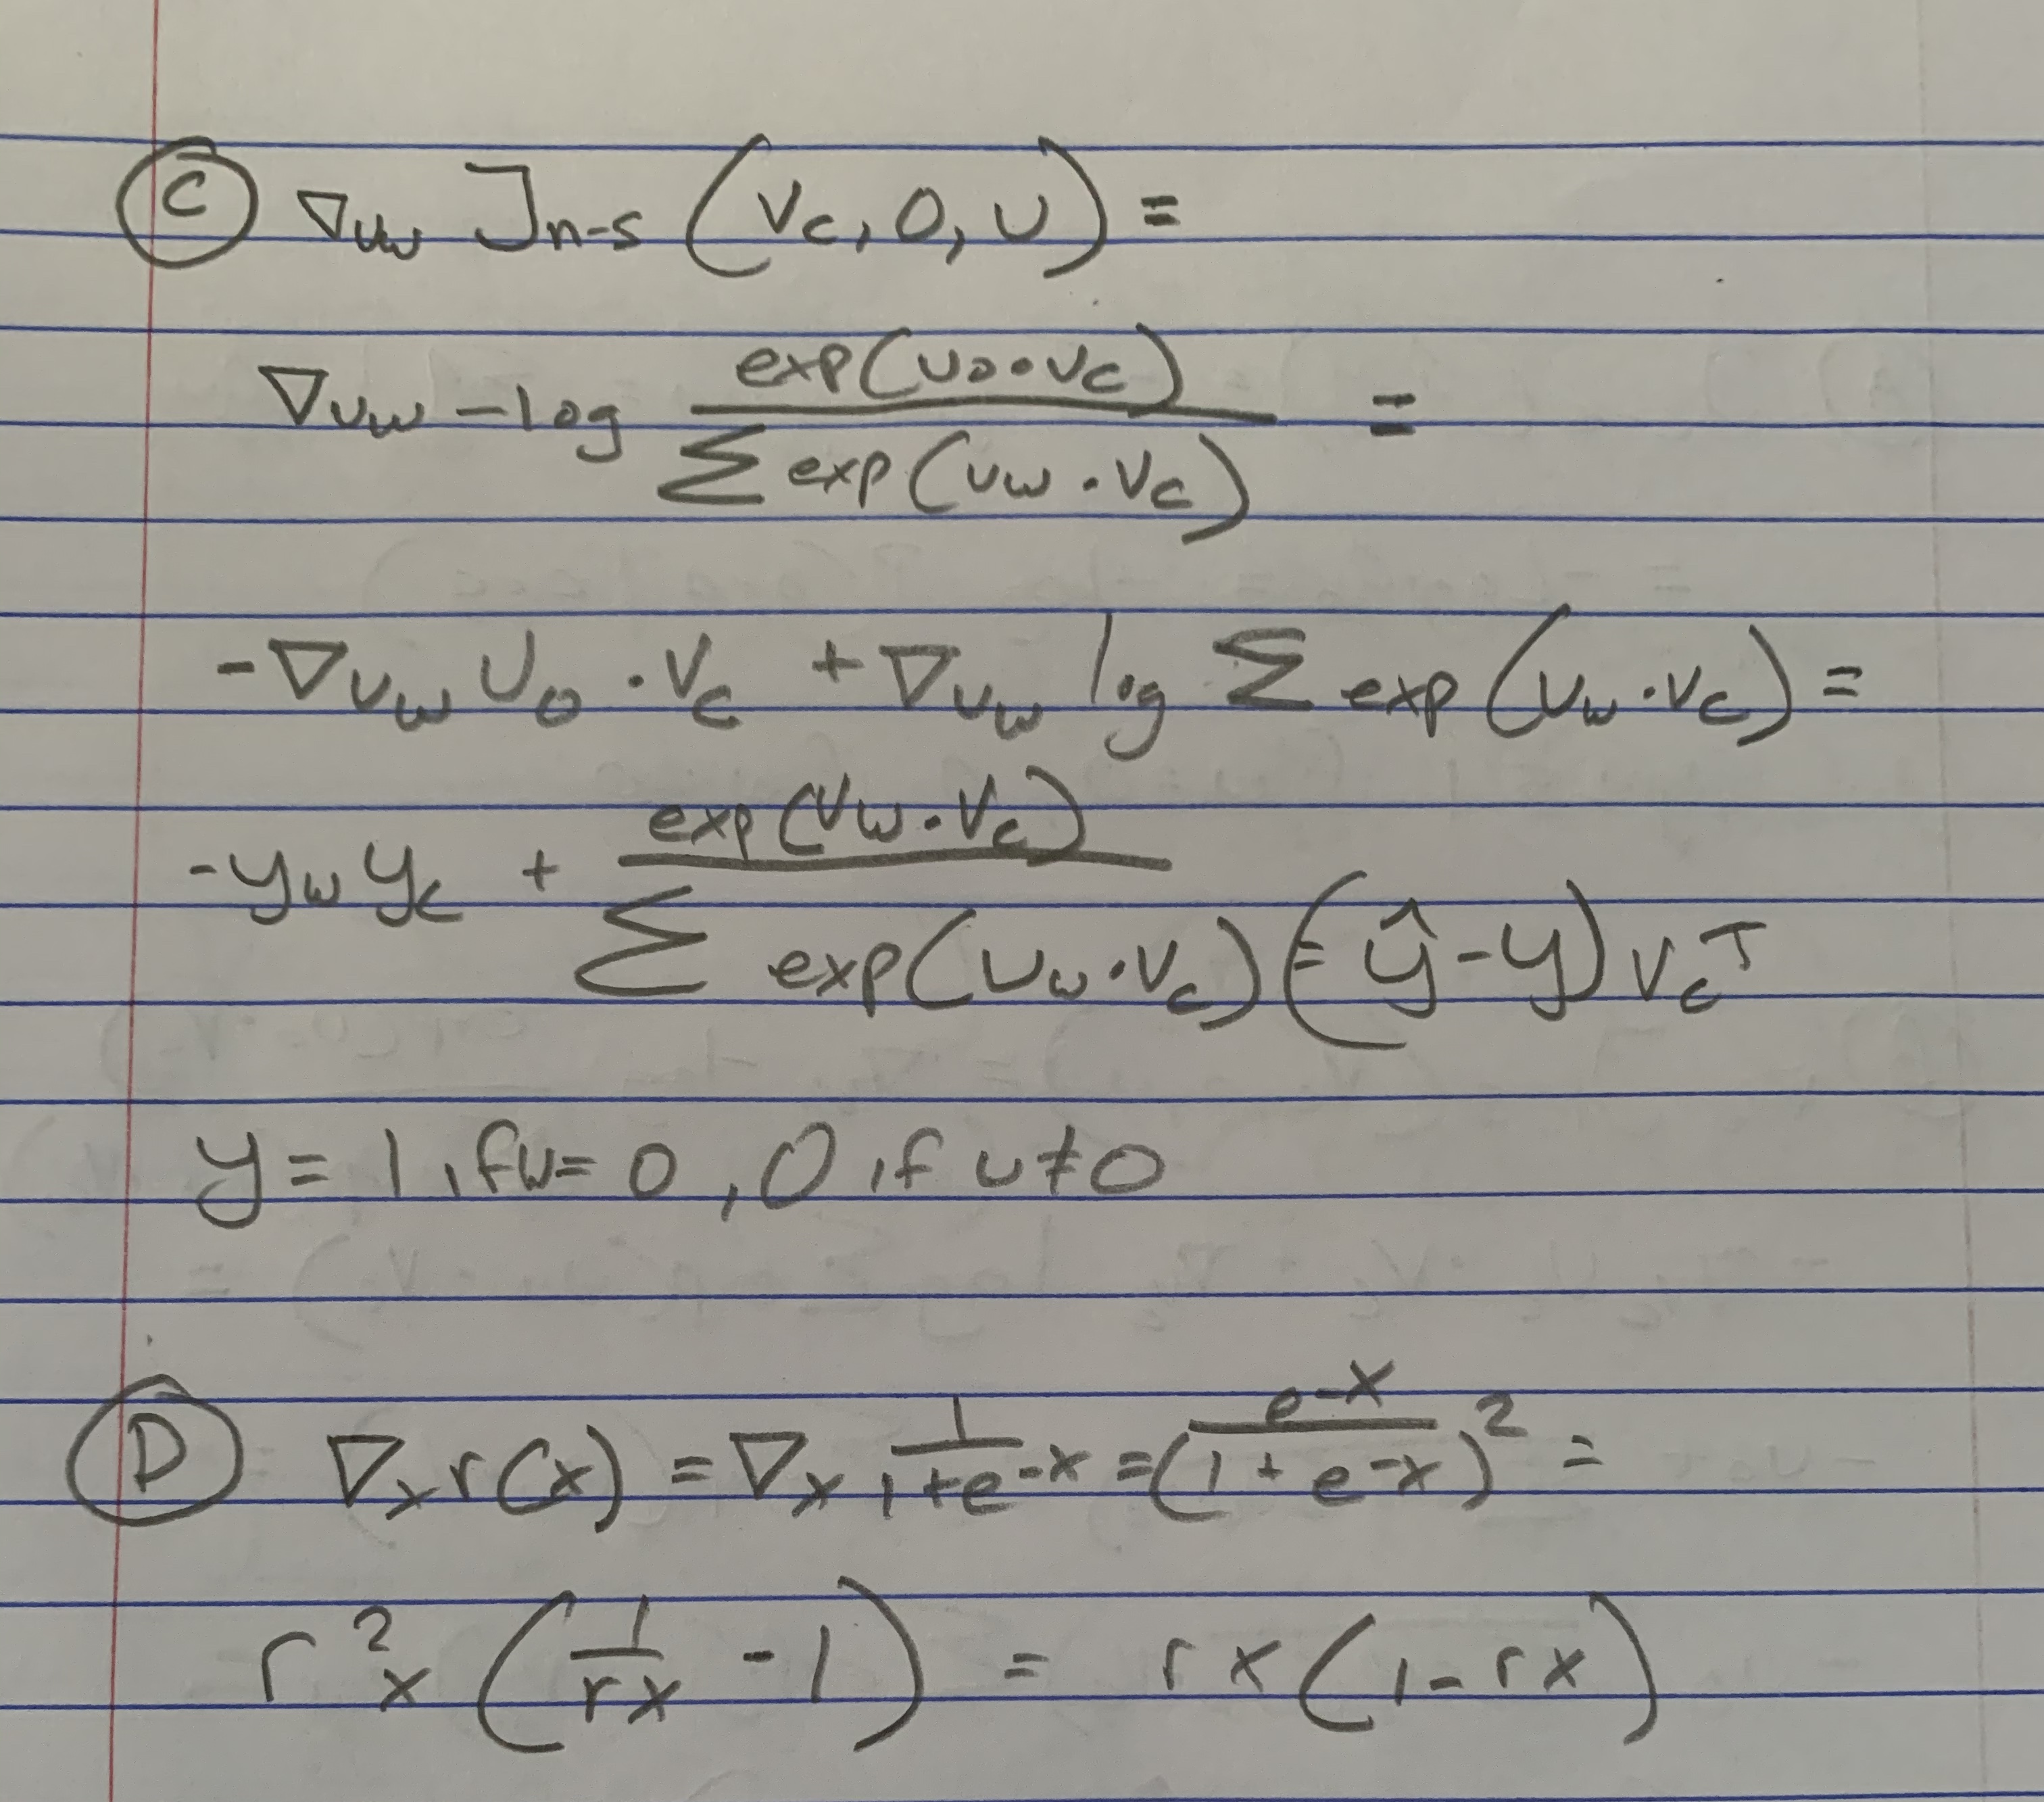 C ∇uw Jn-s (Vc, O, U) =
∇uw -log exp(uo•vc) / Σ exp(uw·vc) =
-∇uw Uo · Vc + ∇uw log Σ exp(uw·vc) =
-yw yc + exp(Vw·Vc) / Σ exp(uw·vc) (= ŷ-y) vcT
y = 1 if w= o, 0 if u≠o
D ∇x r(x) = ∇x 1/1+e-x = (e-x/1+e-x)2 =
r2x (1/rx - 1) = rx(1-rx)